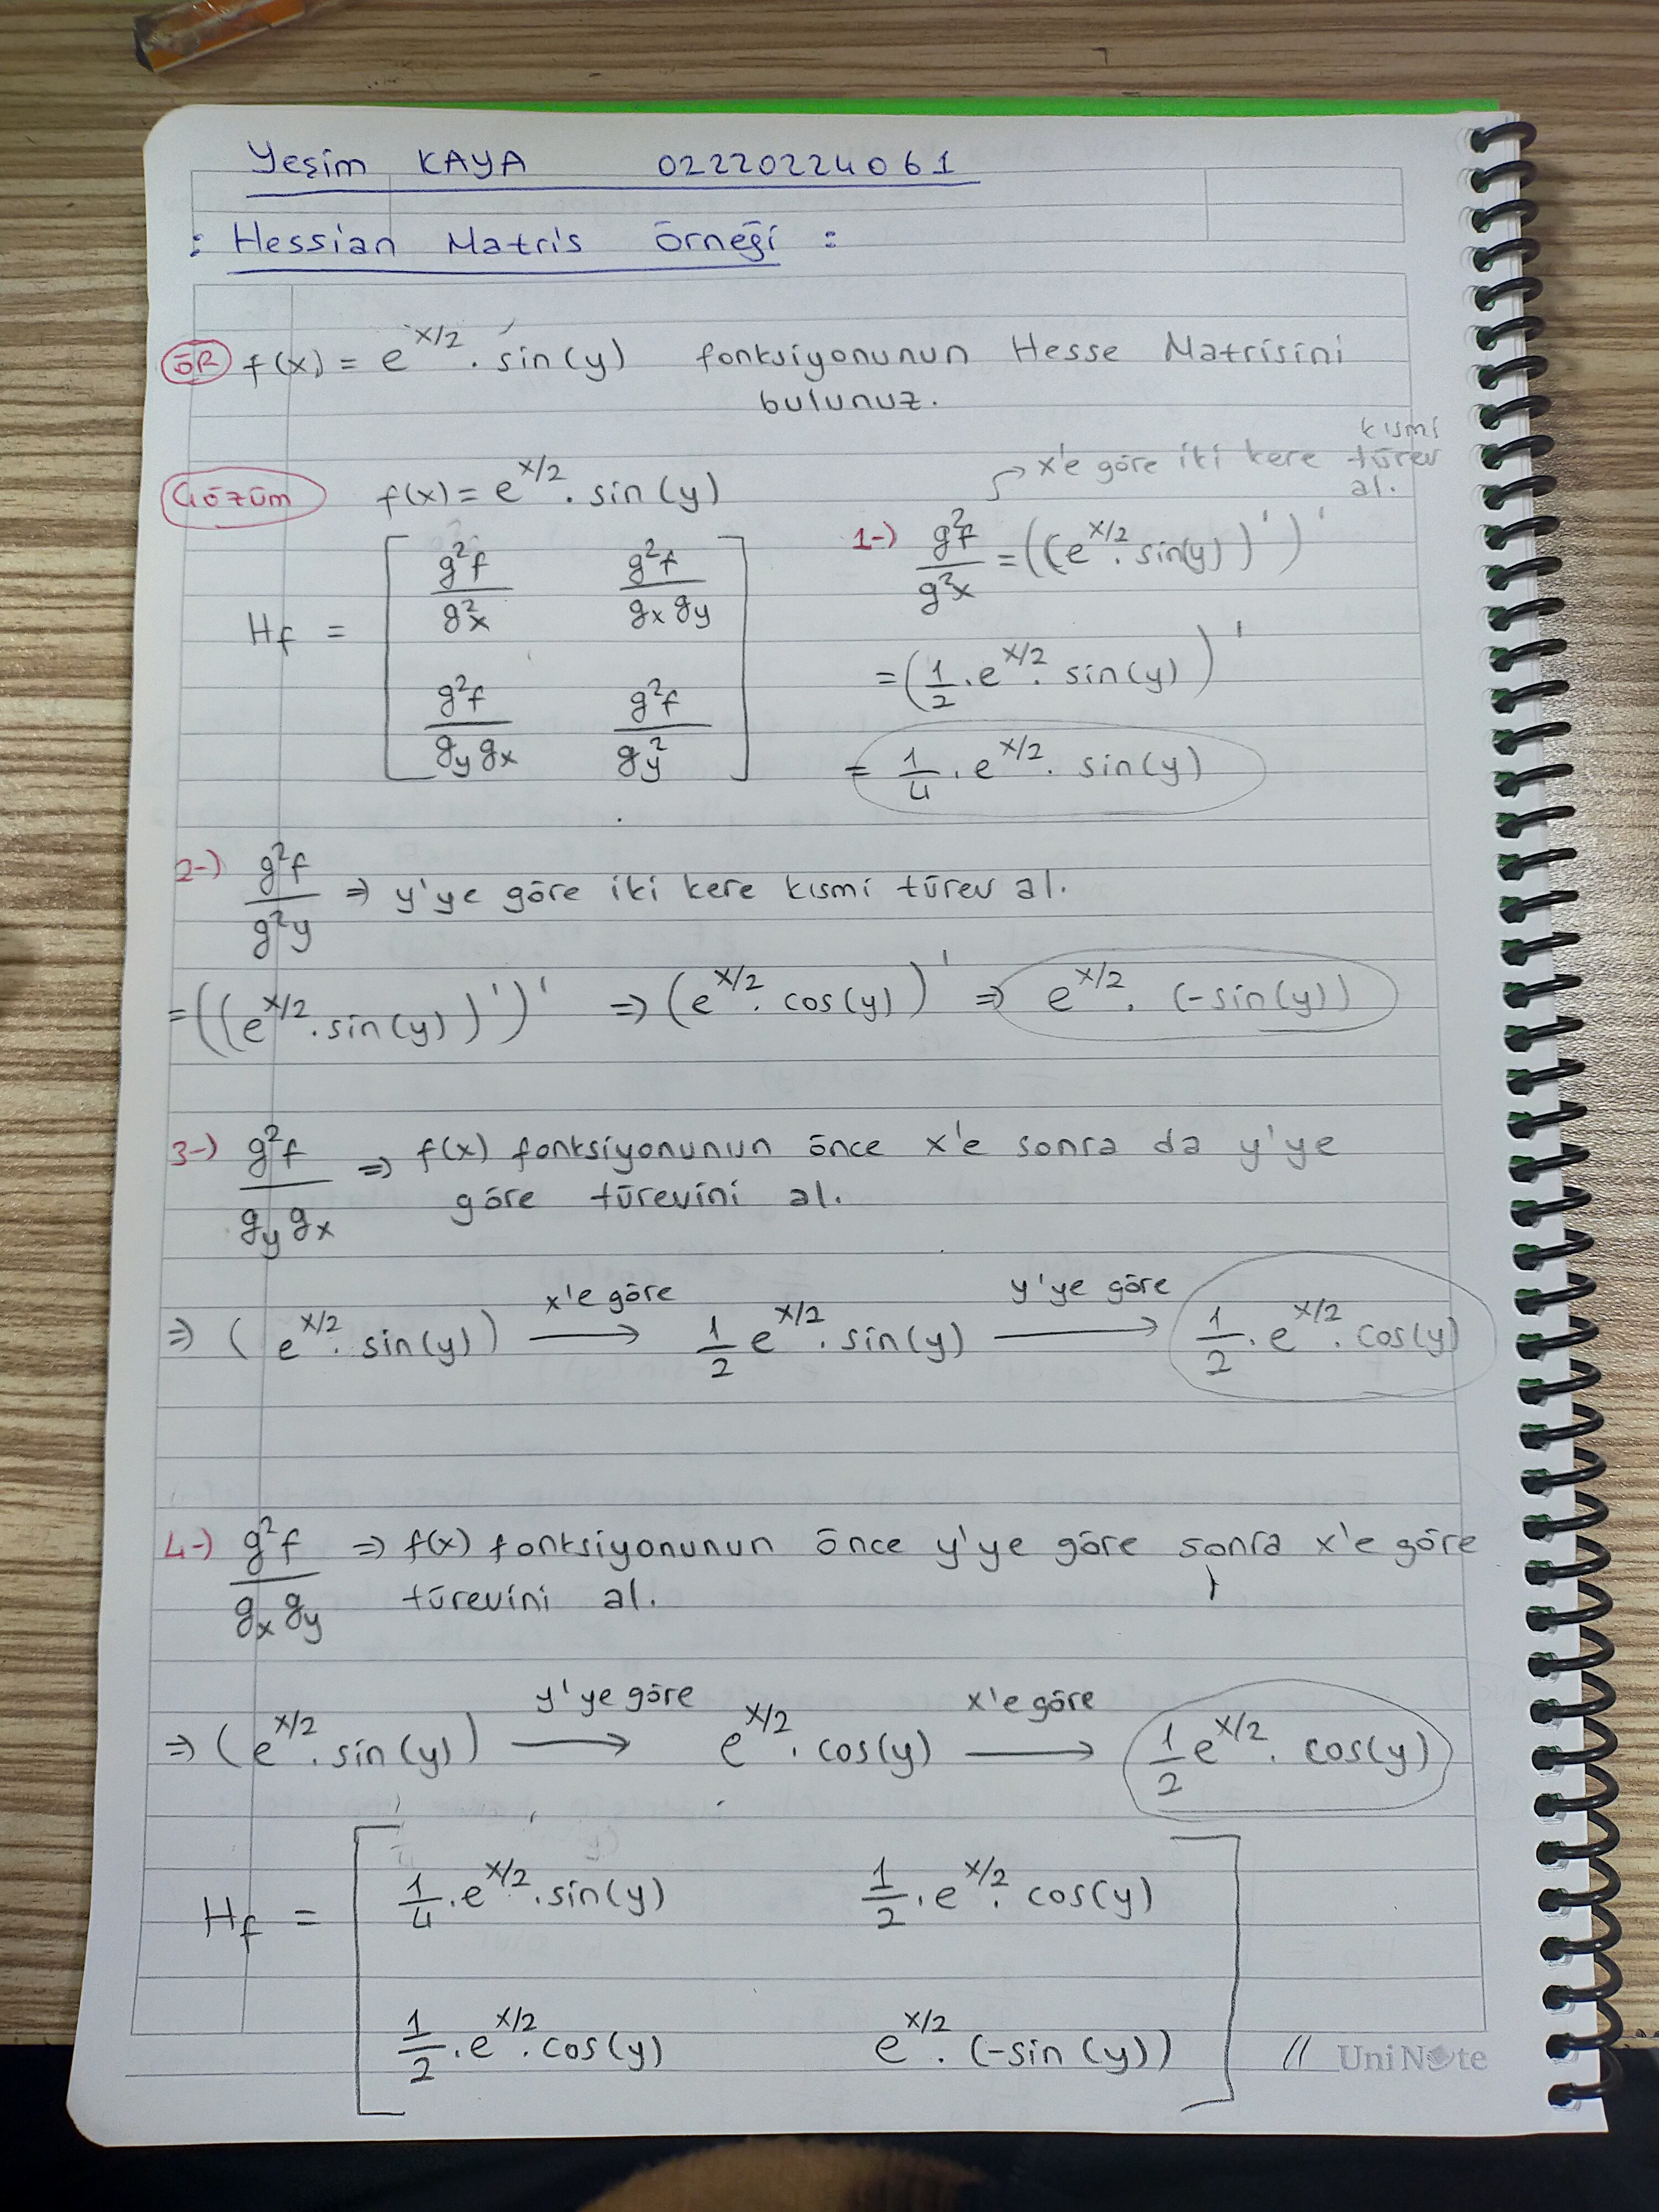 Yeşim KAYA 02220224061
: Hessian Matris Örneği :
ÖR f(x) = e^x/2 . sin(y) fonksiyonunun Hesse Matrisini
bulunuz.
Çözüm f(x) = e^x/2 . sin(y)
Hf = [ g²f/g²x g²f/gx gy
g²f/gy gx g²f/gy² ]
→ x'e göre iki kere kısmi türev
al.
1-) g²f/g²x = ((e^x/2 . sin(y))')'
= (1/2 . e^x/2 . sin(y))'
= 1/4 . e^x/2 . sin(y)
2-) g²f/g²y ⇒ y'ye göre iki kere kısmi türev al.
= ((e^x/2 . sin(y))')' ⇒ (e^x/2 . cos(y))' ⇒ e^x/2 . (-sin(y))
3-) g²f/gy gx ⇒ f(x) fonksiyonunun önce x'e sonra da y'ye
göre türevini al.
⇒ (e^x/2 . sin(y)) x'e göre → 1/2 e^x/2 . sin(y) y'ye göre → 1/2 . e^x/2 . cos(y)
4-) g²f/gx gy ⇒ f(x) fonksiyonunun önce y'ye göre sonra x'e göre
türevini al.
⇒ (e^x/2 . sin(y)) y'ye göre → e^x/2 . cos(y) x'e göre → 1/2 e^x/2 . cos(y)
Hf = [ 1/4 . e^x/2 . sin(y) 1/2 . e^x/2 . cos(y)
1/2 . e^x/2 . cos(y) e^x/2 . (-sin(y)) ] //
UniNote